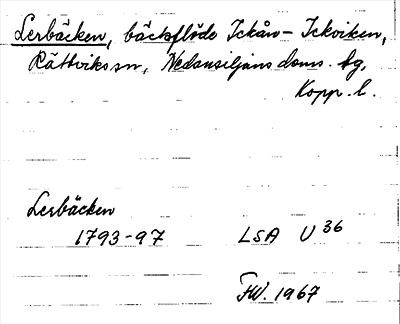 Lerbäcken, bäckflöde Ickån - Ickviken,
Rättviks sn, Nedansiljans doms. tg,
Kopp. l.
Lerbäcken
1793-97 LSA U 36
FW. 1967